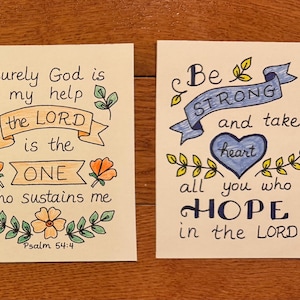 urely God is
my help
the LORD
is the
ONE
ho sustains me
Psalm 54:4
Be
STRONG
and take
heart
all you who
HOPE
in the LORD